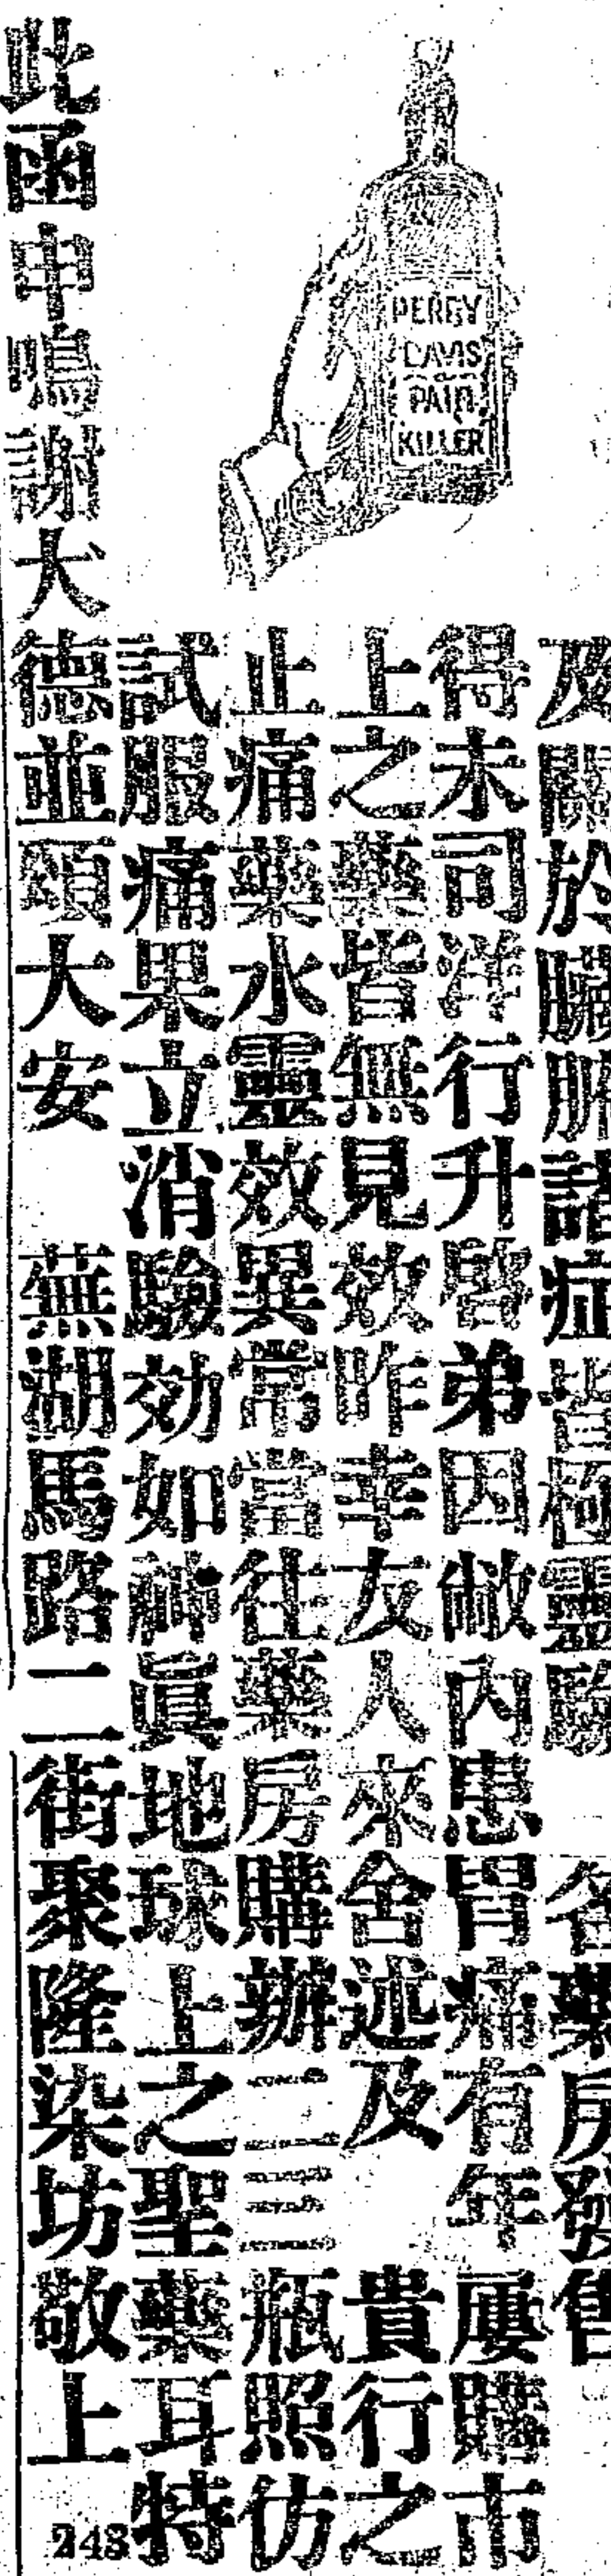 PERRY
DAVIS
PAIN
KILLER
及關於臟腑諸症皆極靈驗 各藥房發售
得未司洋行升啓弟因敝內患胃痛有年屢購市
上之藥皆無見效昨幸友人來舍述及 貴行之
止痛藥水靈效異常當往藥房購辦二三瓶照仿
試服痛果立消驗効如神眞地球上之聖藥耳特
此函申鳴謝大德並頌大安 蕪湖馬路二街聚隆染坊敬上
248